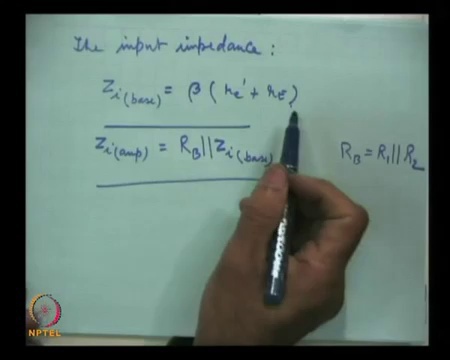 The input impedance :
Zi(base) = β ( re' + rE )
Zi(amp) = RB || Zi(base)
RB = R1 || R2
NPTEL